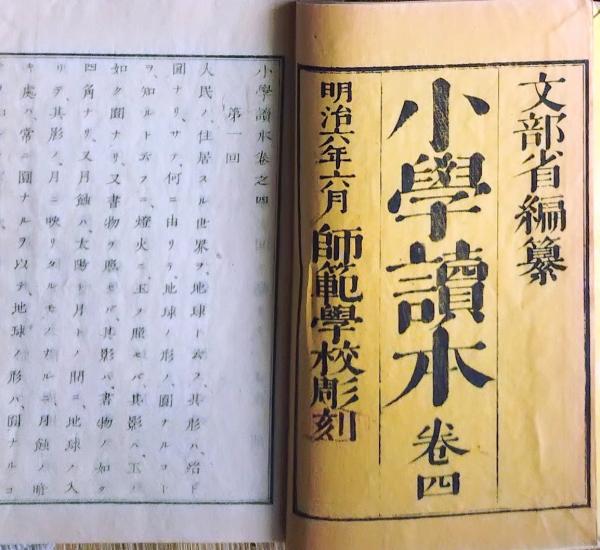 文部省編纂
小學讀本 卷四
明治六年六月 師範學校彫刻
小學讀本卷之四
第一回
人民ノ住居スル世界ヲ、地球ト云フ、其形ハ、殆ド
圓ナリ、サテ、何ニ由リテ、地球ノ形ノ、圓ナルコト
ヲ、知ルト云フニ、燈火ニ玉ヲ照セバ、其影ハ、玉ノ
如ク圓ナリ、又書物ヲ照セバ、其影ハ、書物ノ如ク
四角ナリ、又月蝕ハ、太陽ト月トノ間ニ、地球ノ入
リテ、其影ノ月ニ映リタルモノナルニ、月蝕ノ暗
キ處ハ、常ニ圓ナルヲ以テ、地球ノ形ハ、圓ナルコ